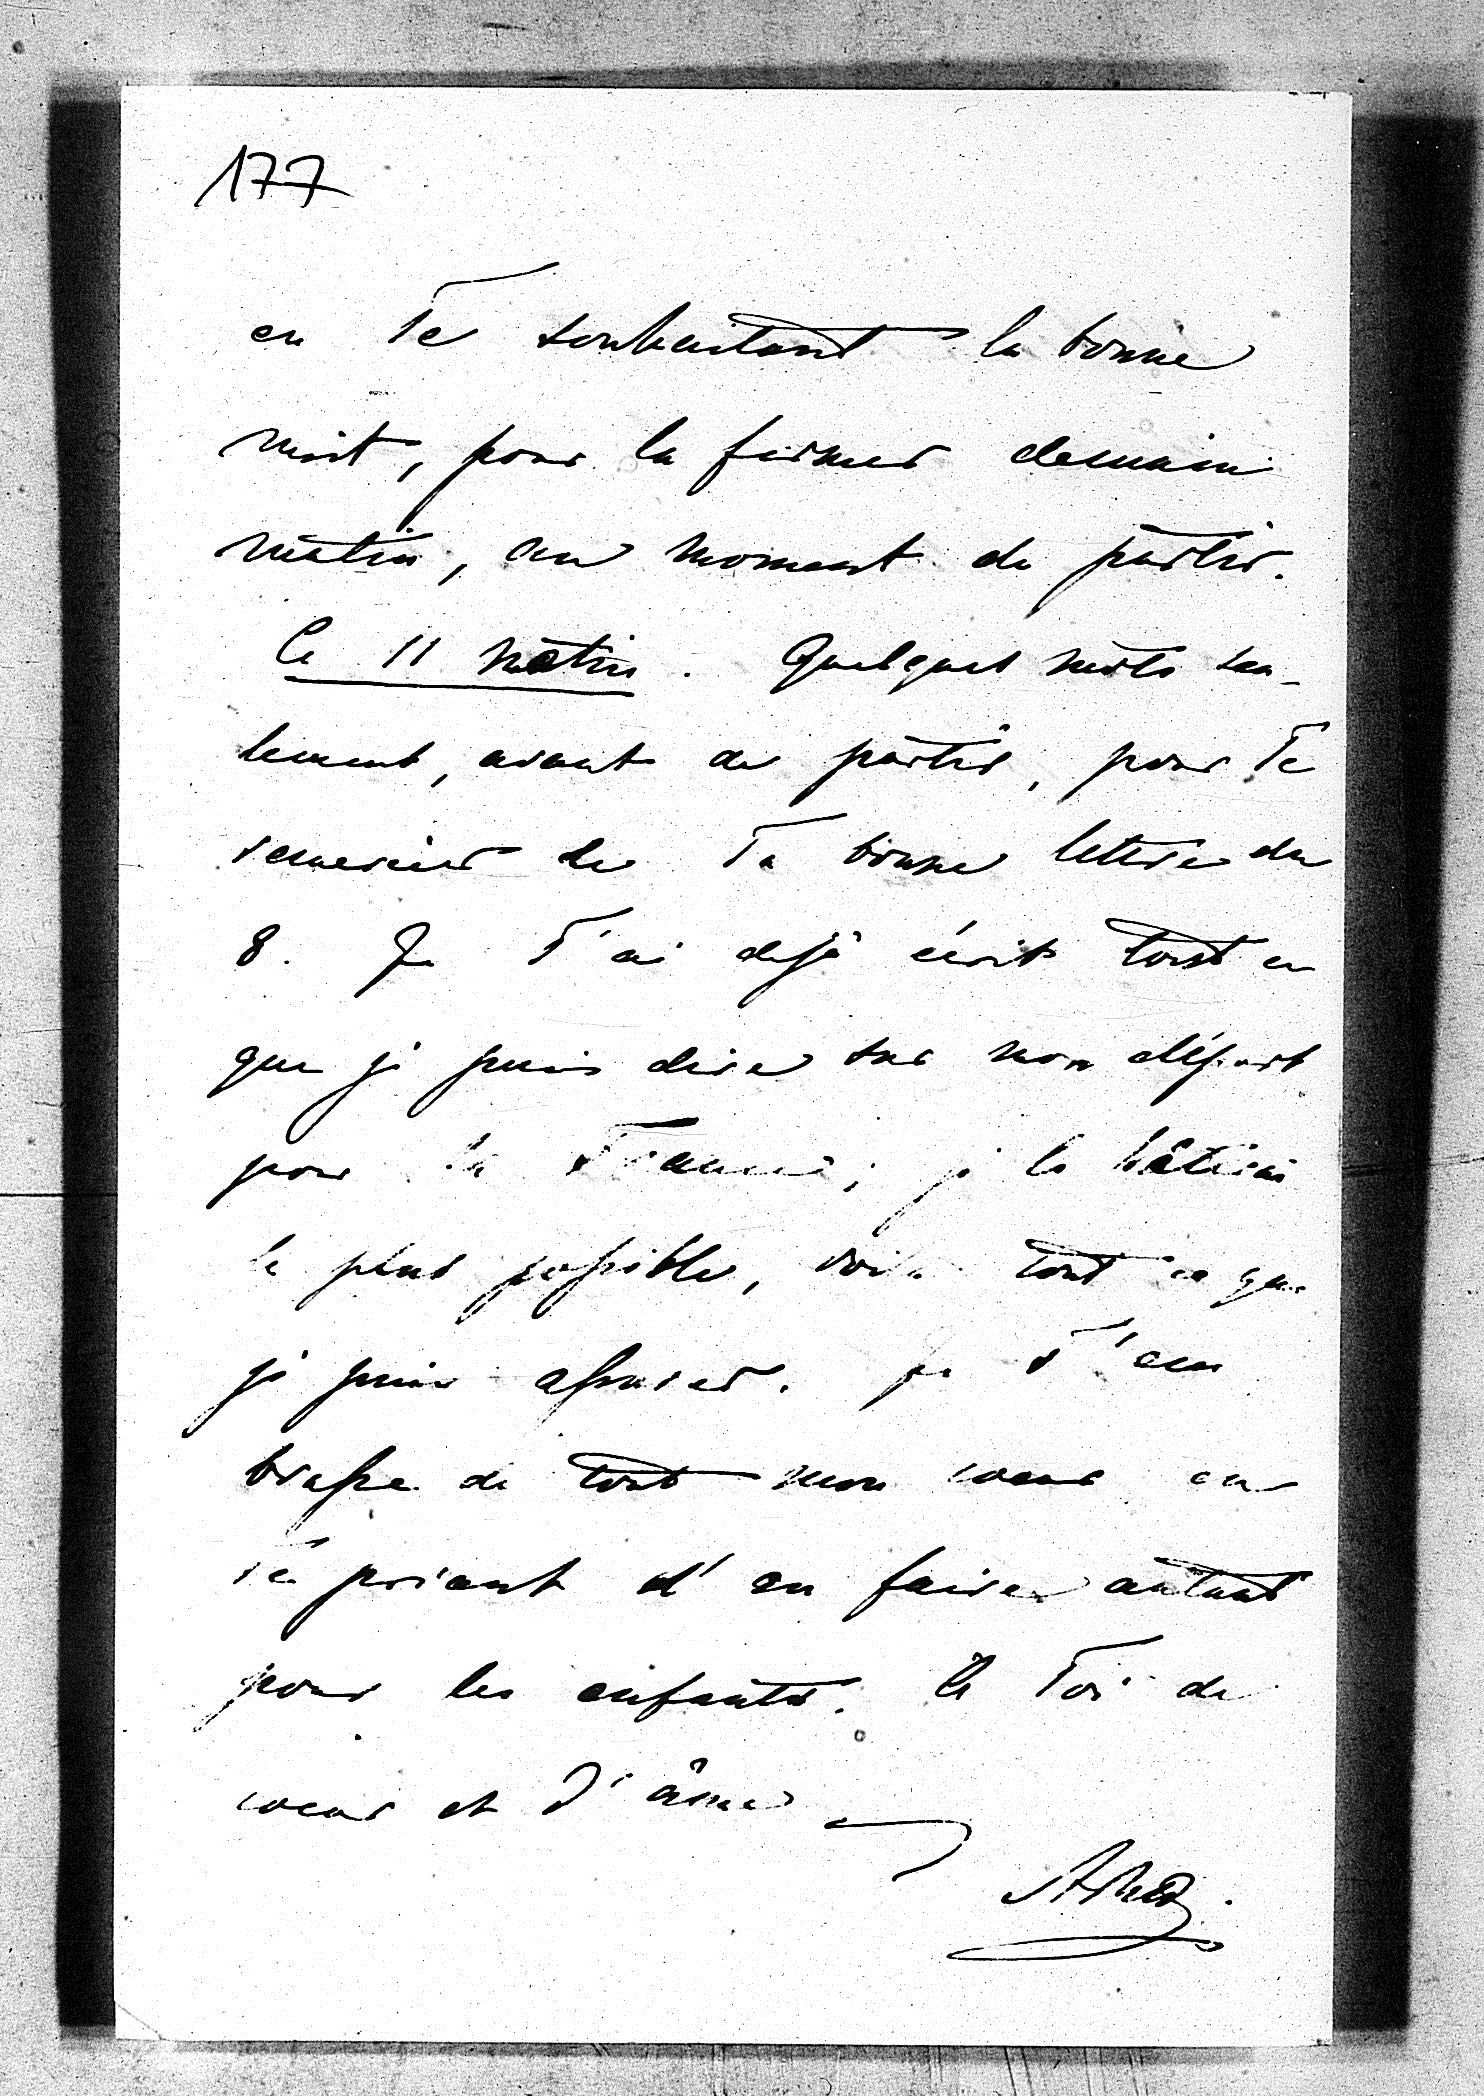 177
en Te souhaitant la bonne
nuit, pour la fermer demain
matin, au moment de partir.
Ce 11 matin. Quelques mots seu-
lement, avant de partir, pour Te
remercier de Ta bonne lettre du
8. Je T'ai déjà écrit tout ce
que je puis dire sur mon départ
pour la France; je le hâterai
le plus possible, voilà tout ce que
je puis assurer. Je T'em
brasse de tout mon coeur en
Te priant d'en faire autant
pour les enfants. à Toi de
coeur et d'âme